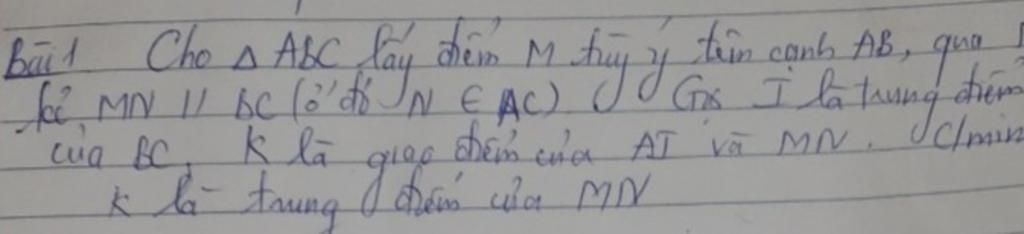 Bài 1 Cho Δ ABC lấy điểm M tùy ý trên cạnh AB, qua
kẻ MN // BC (ở đó N ∈ AC) Gs I là trung điểm
của BC, K là giao điểm của AI và MN. C/min
K là trung điểm của MN